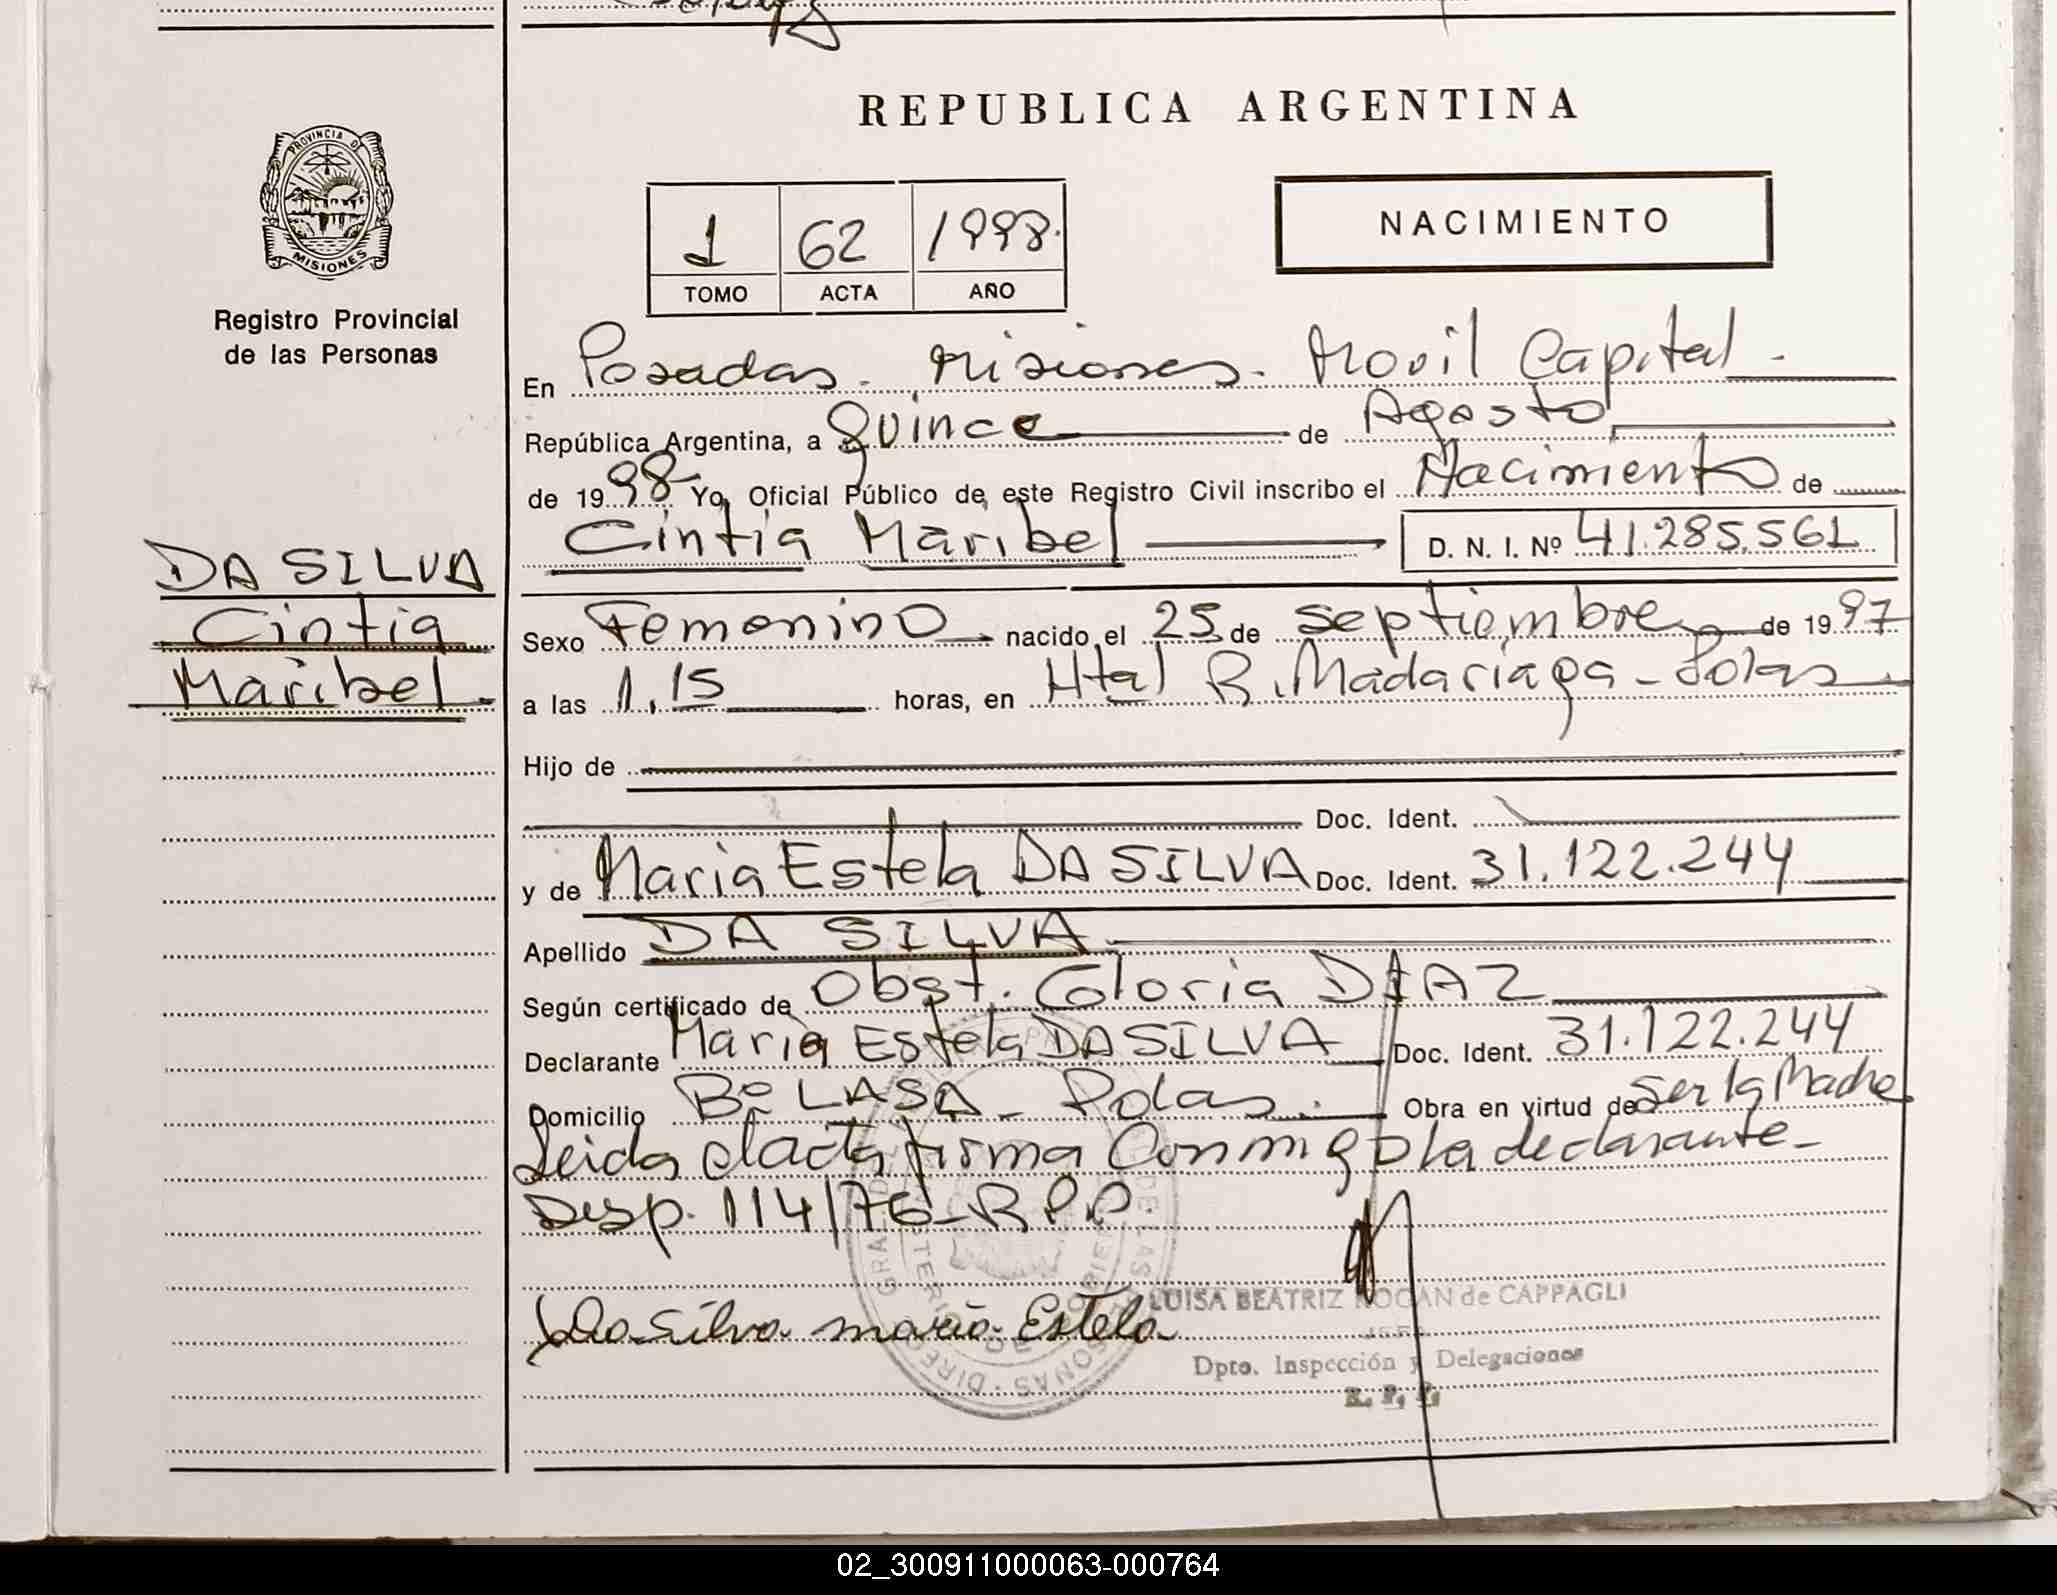 REPUBLICA ARGENTINA
PROVINCIA DE
MISIONES
Registro Provincial
de las Personas
1 62 1998.
TOMO ACTA AÑO
NACIMIENTO
En Posadas. Misiones. Movil Capital.
República Argentina, a quince de Agosto
de 1998 Yo, Oficial Público de este Registro Civil inscribo el Nacimiento de
Cintia Maribel D. N. I. Nº 41.285.561
DA SILVA
Cintia
Maribel.
Sexo Femenino nacido el 25 de septiembre de 1997
a las 1.15 horas, en Htal R. Madariaga - Pdas.
Hijo de
Doc. Ident.
y de Maria Estela DA SILVA Doc. Ident. 31.122.244
Apellido DA SILVA
Según certificado de Obst. Gloria DIAZ
Declarante Maria Estela DA SILVA Doc. Ident. 31.122.244
Domicilio Bº LASA - Pdas. Obra en virtud de ser la Madre
Leida el acta firma conmigo la declarante -
Desp. 114/76 - R P P
Da Silva maria Estela
LUISA BEATRIZ ROGAN de CAPPAGLI
JEFE
Dpto. Inspección y Delegaciones
R. P. P.
02_300911000063-000764